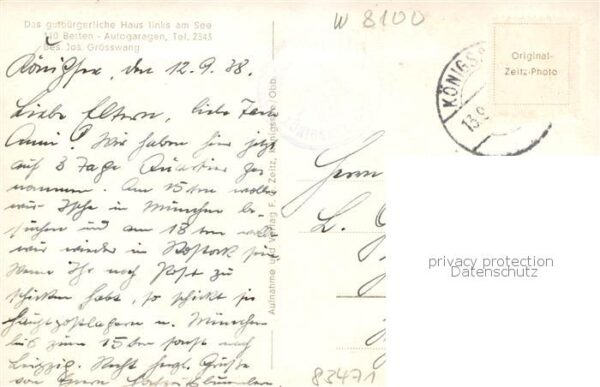 Das gutbürgerliche Haus links am See
110 Betten - Autogaragen, Tel. 2343
Bes. Jos. Grösswang
W 8100
Original-
Zeitz-Photo
KÖNIGS
13.9
Königssee, den 12.9.38.
Liebe Eltern, liebe Tante
Anni! Wir haben hier jetzt
auf 3 Tage Quartier ge-
nommen. Am 15ten wollen
wir in München be-
suchen und am 18ten
wir wieder in Rostock sein
Wenn Ihr noch Post zu
schicken habt, so schickt sie
hauptpostlagernd n. München
bis zum 15ten sonst nach
Leipzig. Recht herzl. Grüße
von Euren
Aufnahme und Verlag F. G. Zeitz, Königssee/Obb.
Herrn
L.
privacy protection
Datenschutz
83471